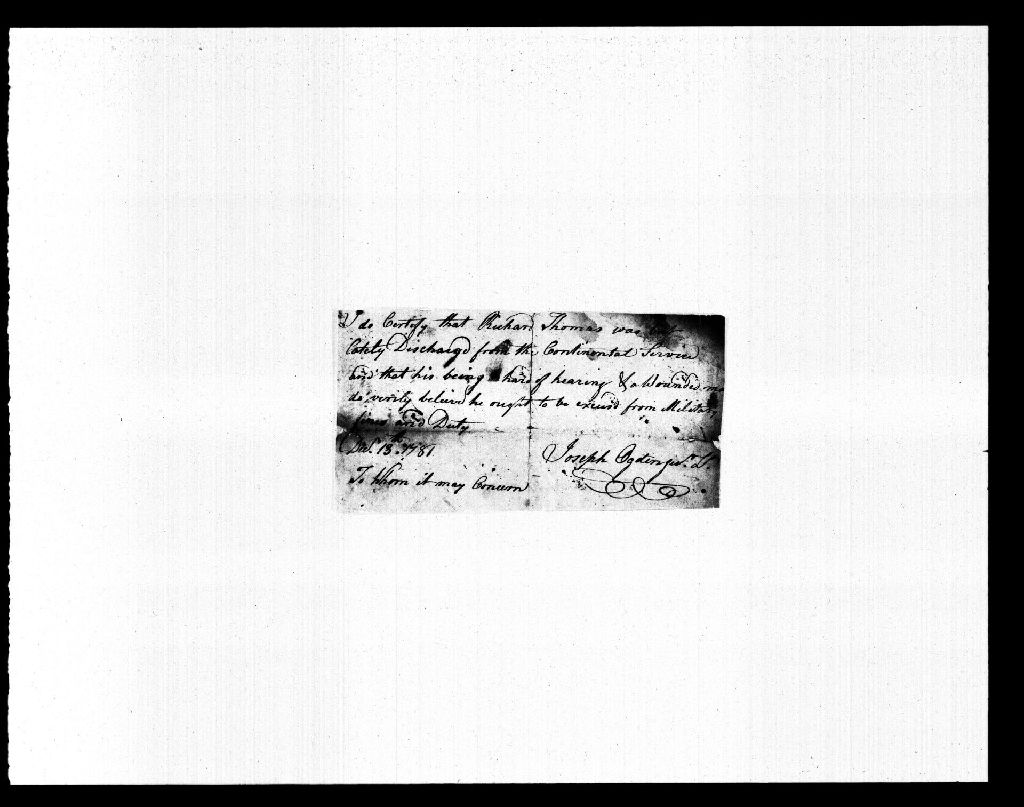 I do Certify that Richard Thomas was but
lately Discharg'd from the Continental Service
and that his being hard of hearing & a Wounded man
do verily beleive he ought to be excus'd from Militia
fines and Duty
Decr. 13th. 1781
Joseph Ogden Jur.
To whom it may Concern